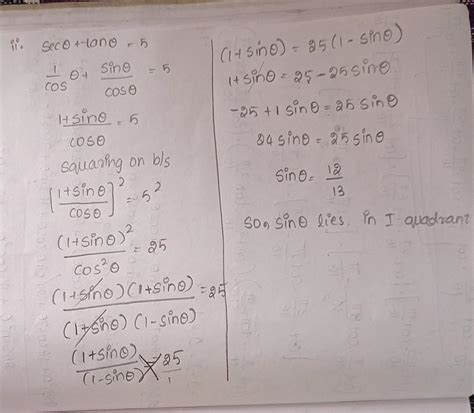 ii. secθ + tanθ = 5
1/cos θ + sinθ/cosθ = 5
1+sinθ/cosθ = 5
squaring on b/s
[1+sinθ/cosθ]² = 5²
(1+sinθ)²/cos²θ = 25
(1+sinθ)(1+sinθ)/(1+sinθ)(1-sinθ) = 25
(1+sinθ)/(1-sinθ) = 25/1
(1+sinθ) = 25(1-sinθ)
1+sinθ = 25-25sinθ
-25+1 sinθ = 25sinθ
24sinθ = 25sinθ
sinθ = 12/13
so, sinθ lies in I quadrant